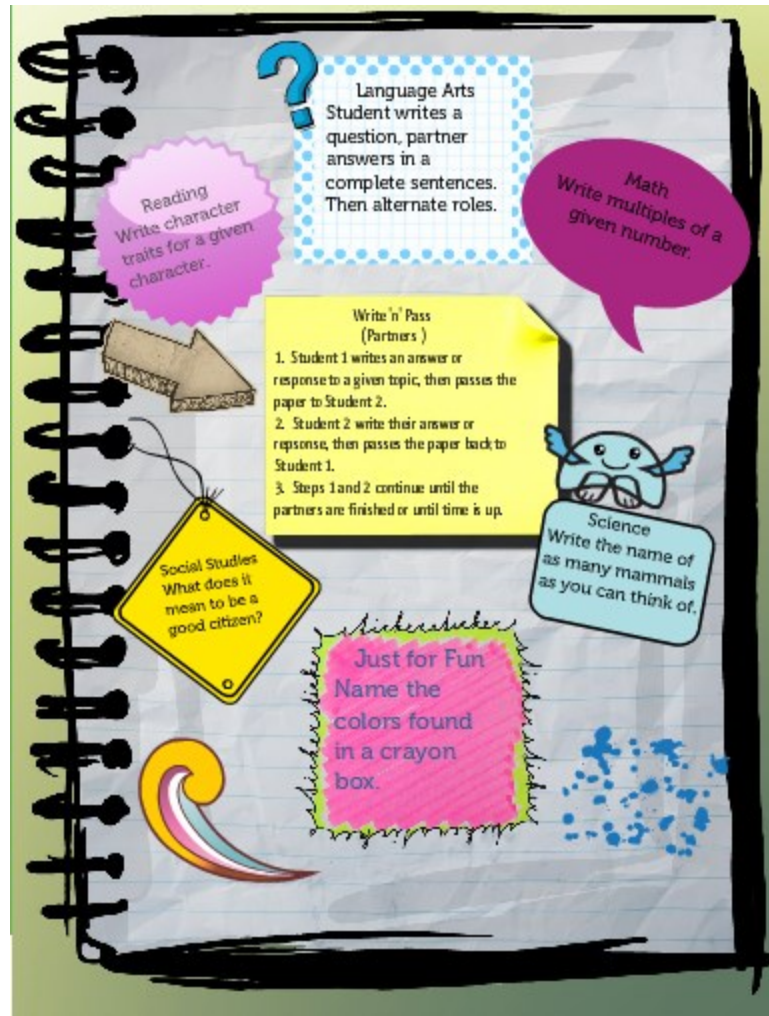 Language Arts
Student writes a
question, partner
answers in a
complete sentences.
Then alternate roles.
Reading
Write character
traits for a given
character.
Math
Write multiples of a
given number.
Write 'n' Pass
(Partners )
1. Student 1 writes an answer or
response to a given topic, then passes the
paper to Student 2.
2. Student 2 write their answer or
repsonse, then passes the paper back to
Student 1.
3. Steps 1 and 2 continue until the
partners are finished or until time is up.
Social Studies
What does it
mean to be a
good citizen?
Science
Write the name of
as many mammals
as you can think of.
Just for Fun
Name the
colors found
in a crayon
box.